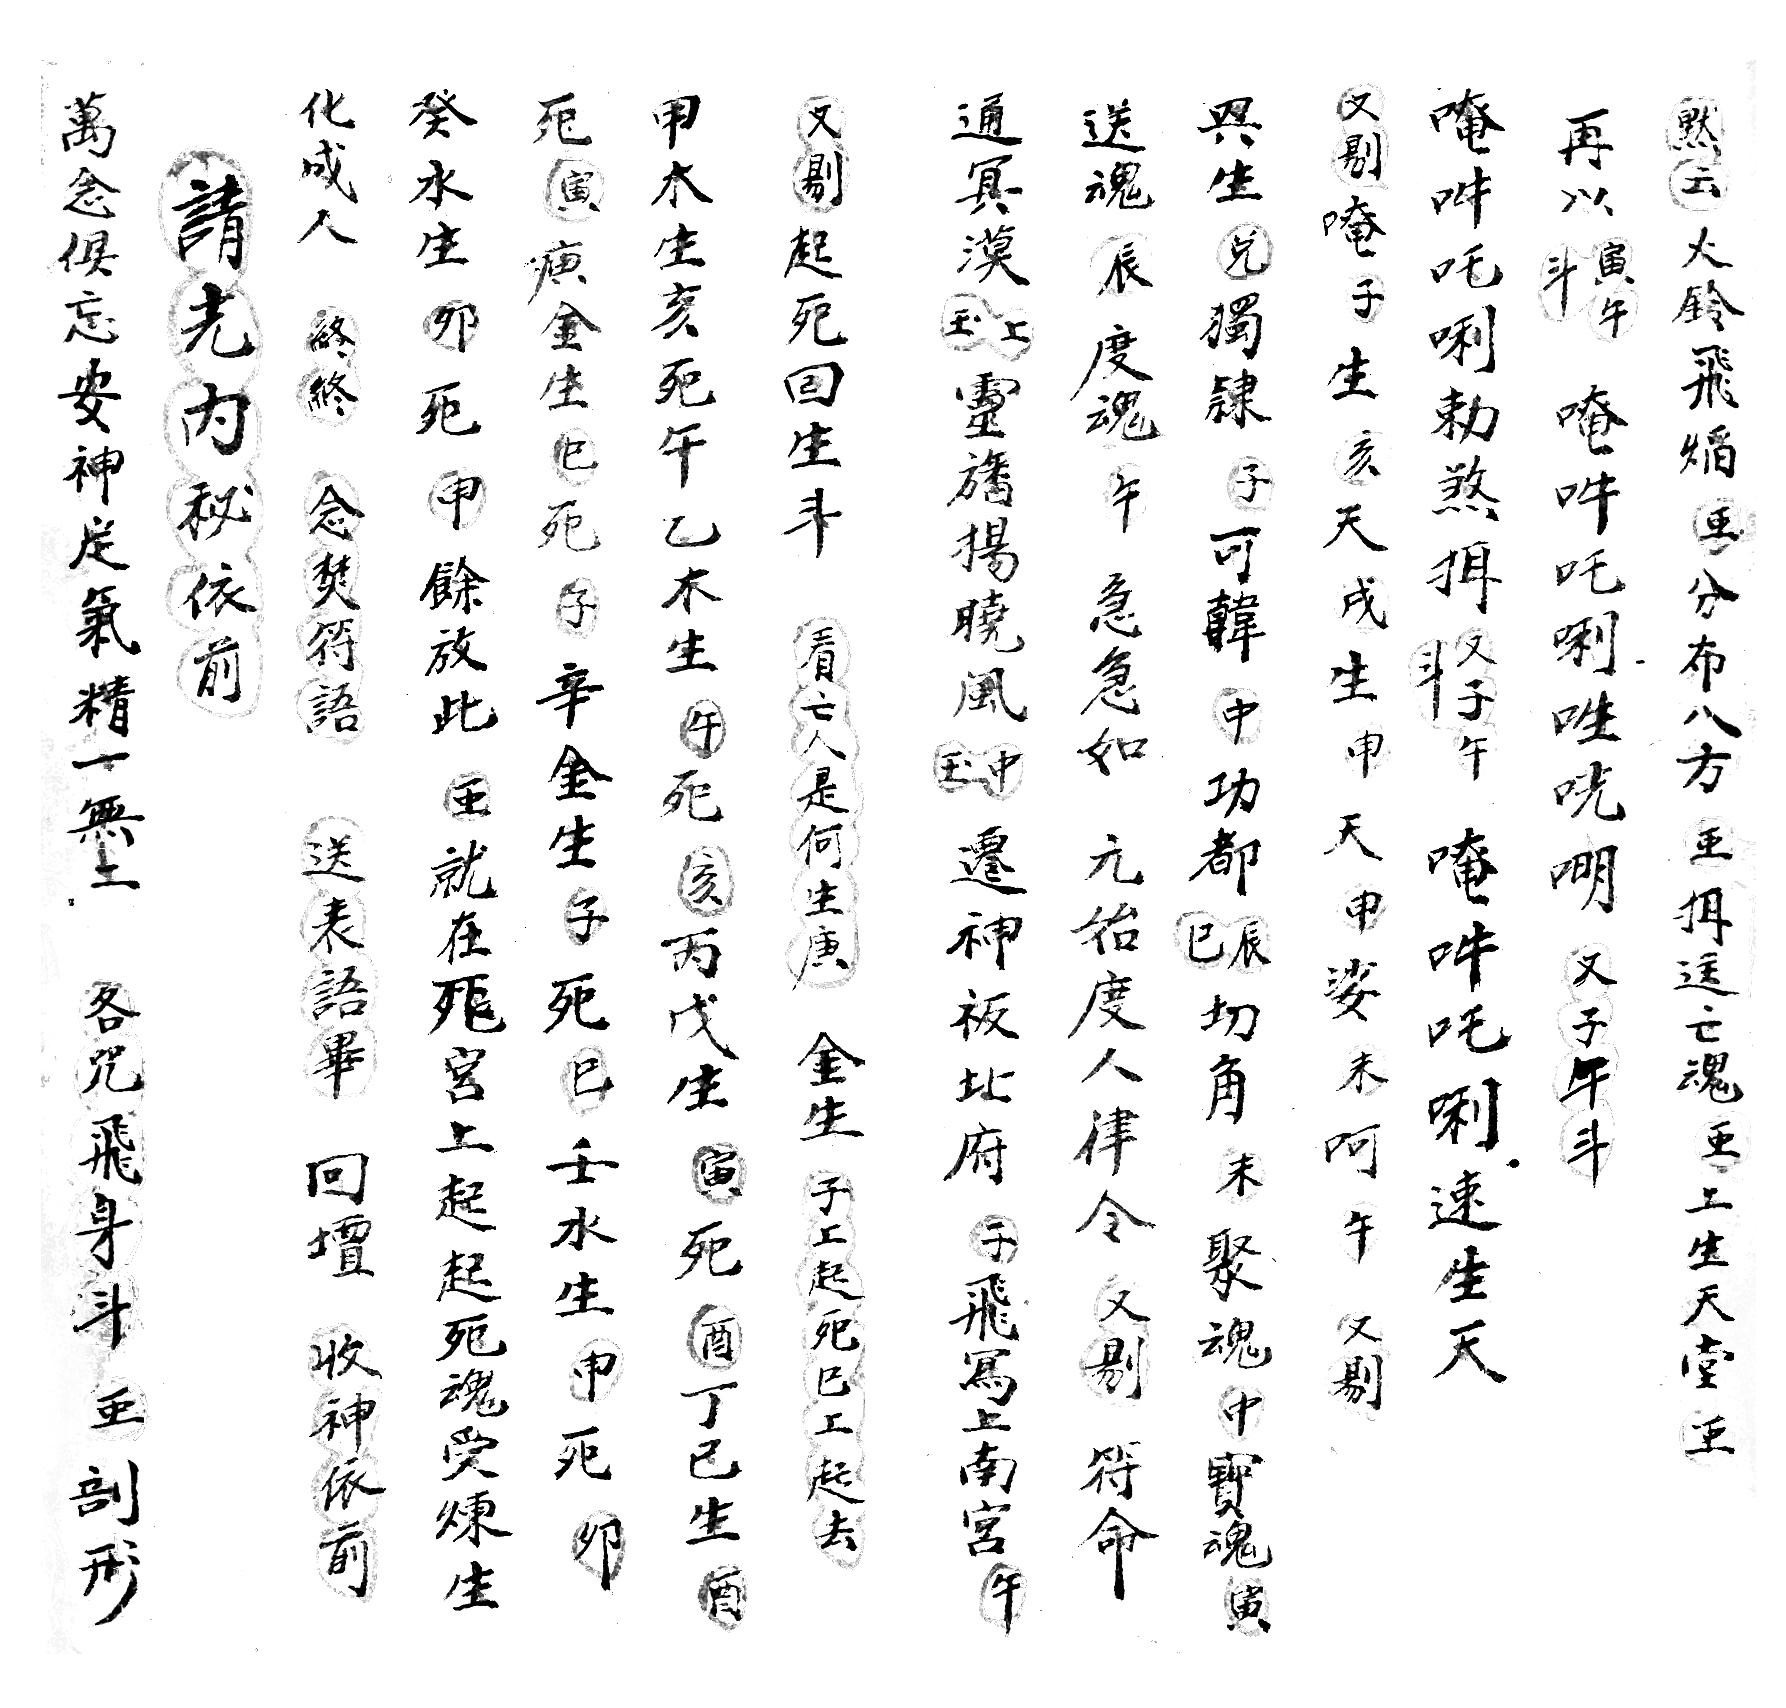 默云火鈴飛焰玉分布八方玉揖送亡魂玉上生天堂玉
再以寅午斗唵吽吒唎唑咣𠵼又子午斗
唵吽吒唎勅煞揖又子午斗唵吽吒唎速生天
又剔唵子生亥天戌生申天申天甲娑未呵午又剔
與生兌獨隸子可韓中功都辰巳切角未聚魂中寶魂寅
送魂辰度魂午急急如元始度人律令又剔符命
通冥漠上玉靈旛揚曉風中玉遷神板北府子飛舄上南宮午
又剔起死回生斗看亡人是何生庚金生子上起死巳上起去
甲木生亥死午乙木生午死亥丙戊生寅死酉丁己生酉
死寅庚金生巳死子辛金生子死巳壬水生申死卯
癸水生卯死申餘放此玉就在死宮上起起死魂受煉生
化成人終終念焚符語送表語畢回壇收神依前
請光內秘依前
萬念俱忘安神定氣精一無二各咒飛身斗玉剖形